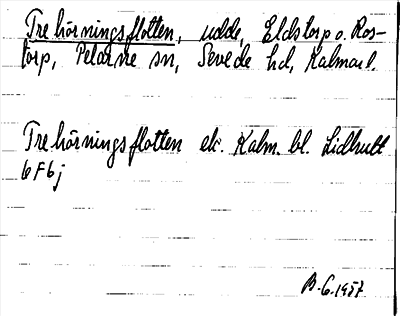 Trehörningsflotten, udde, Eldstorp o. Ros-
torp, Pelarne sn, Sevede hd, Kalmar l.
Trehörningsflotten ek. Kalm. bl.
6 F 6 j
B. G. 1957